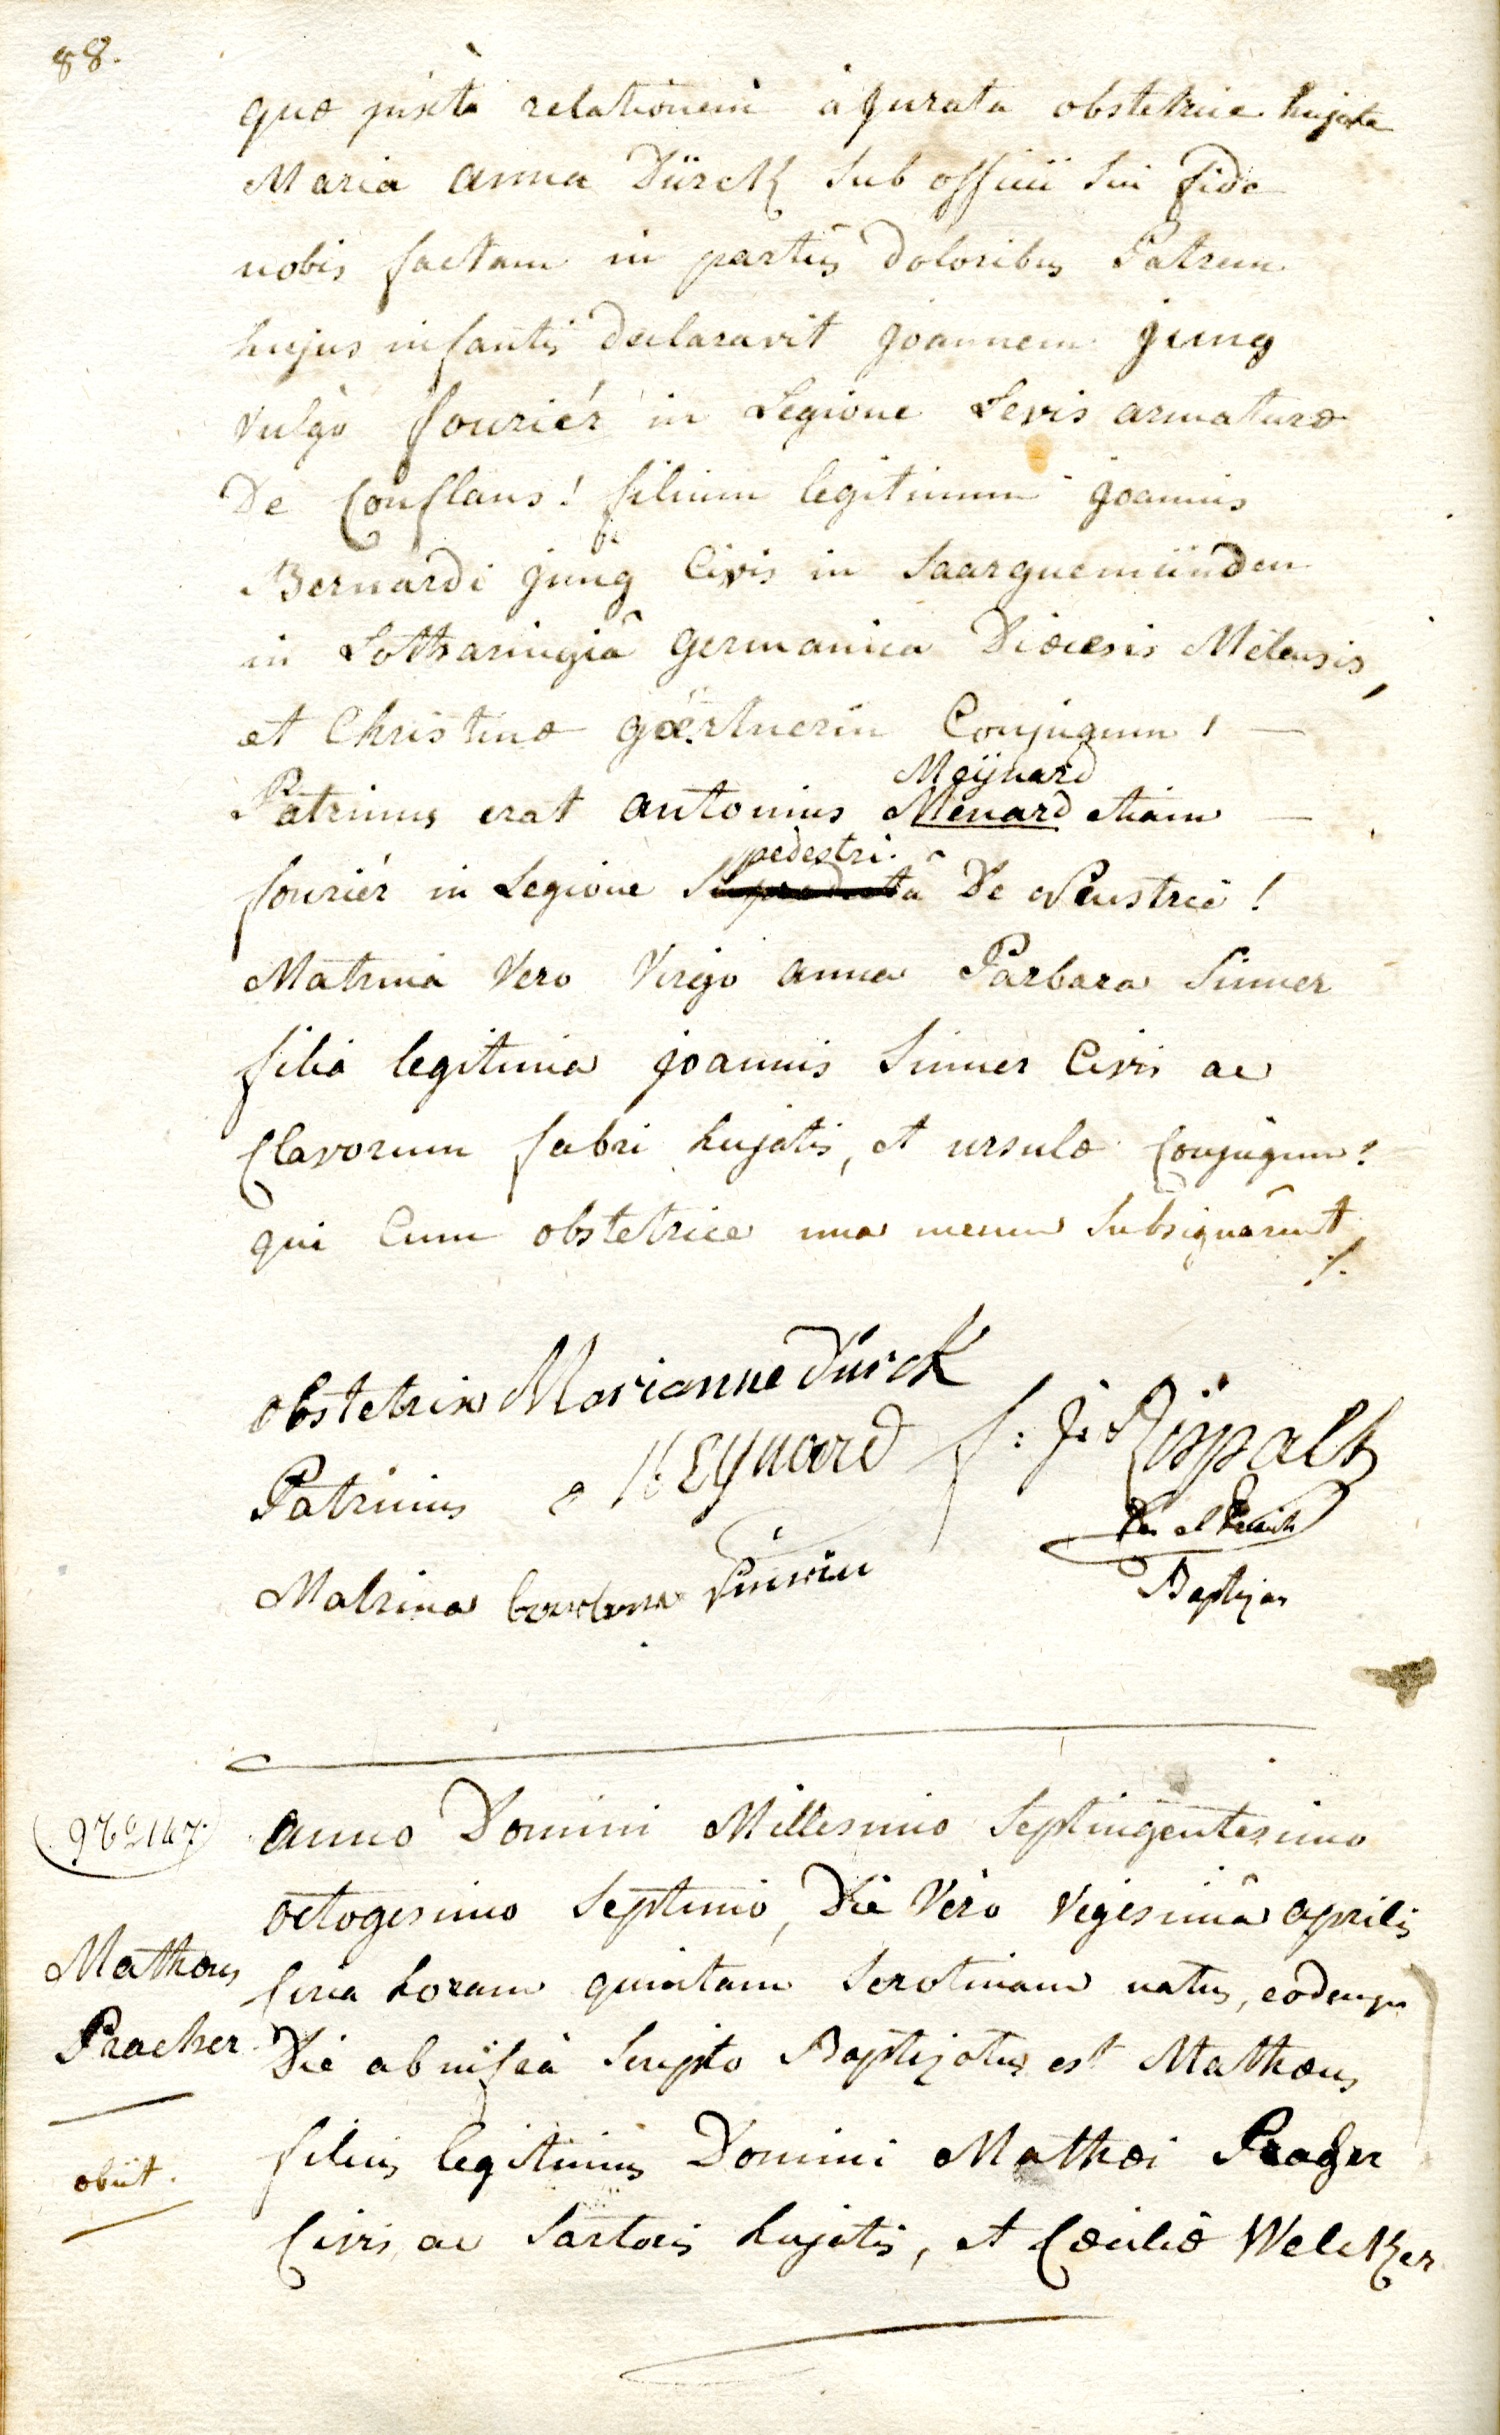 88.
quæ juxtà relationem à jurata obstetrice hujate
Maria anna Dürck sub officii sui fide
nobis factam in partûs doloribus Patrem
hujus infantis declaravit joannem jung
vulgò fouriér in Legione Levis armaturæ
De Conflans! filium legitimum joannis
Bernardi jung Civis in Saarguemünden
in Lotharingiâ germanica Diœcesis Metensis,
et Christinæ gærtnerin Conjugum! —
Meÿnard
Patrinus erat antonius Menard etiam —
pedestri.
fouriér in Legione supradictâ De Neustrie!
Matrina vero virgo anna Barbara Sinner
filia legitima joannis Sinner Civis ac
Clavorum fabri hujatis, et ursulæ Conjugum!
qui Cum obstetrice una mecum subsignârunt
obstetrix Marianne Dürck
Patrinus Meynard f: j:
Matrina barbara sinerin
Baptizans
anno Domini Millesimo septingentesimo
octogesimo septimo, Die vero vigesimâ aprilis
Mathæus
circa horam quintam serotinam natus, eodemque
Pracher
Die ab infra scripto Baptizatus est Mathæus
filius legitimus Domini Mathæi Prager
obiit.
Civis ac Sartoris hujatis, et Cæciliæ Welcker